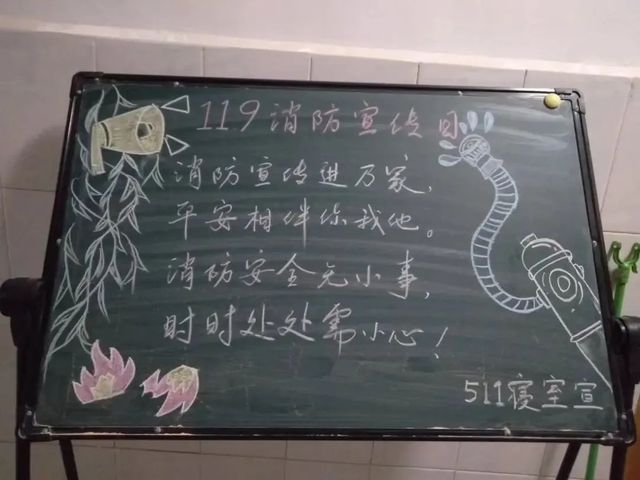 119消防宣传日
消防宣传进万家，
平安相伴你我他。
消防安全无小事，
时时处处需小心！
511寝室宣